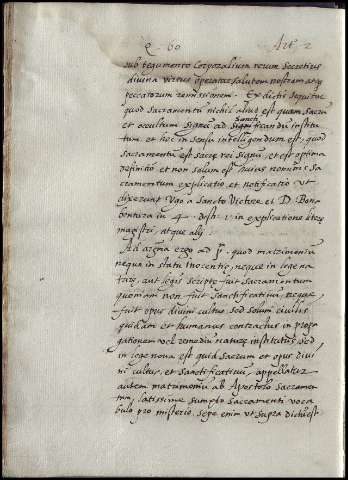 Q. 60 Art. 2
sub tegumento Corporalium rerum secretius
divina virtus operatur salutem nostram atque
peccatorum remissionem. Ex dictis sequitur
quod sacramentū nichil aliud est quam sacrū
et occultum signū ad sanctificandū institu
tum. et hoc in sensu intelligendum est. quod
sacramentū est sacre rei signū, et est optima
definitio et non solum est huius nominis sa
cramentum explicatio et notificatio. ut
dixerunt Vgo a Sancto Victore et D. Bona
bentura in 4. dist. 1. in explicatione
magistri, atque alij.
Ad argum ergo ad pm. quod matrimonium
neque in statu inocentie, neque in lege natu
rae, aut legis scripte fuit sacramentum
quoniam non fuit sanctificativū, neque
fuit opus divini cultus sed solum civilis
quidam et humanus contractus in propa
gationem vel remediū nature institutus sed
in lege nova est quid sacrum et opus divi
ni cultus, et sanctificativū, appellatur
autem matrimoniū ab Apostolo sacramen
tum, latissime sumpto sacramenti voca
bulo pro misterio. sepe enim ut supra dictū est